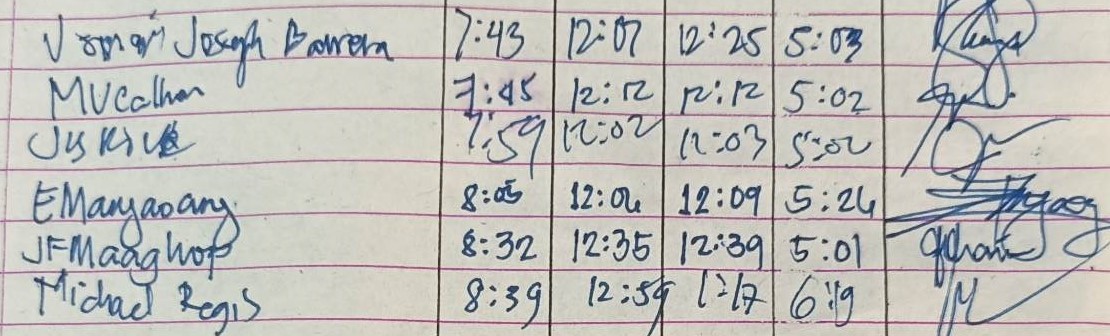 Joseph Barrera 7:43 12:07 12:25 5:03
MVCalhon 7:45 12:12 12:12 5:02
7:59 12:02 12:03 5:02
EManyaoang 8:05 12:04 12:09 5:24
JFMaaghop 8:32 12:35 12:39 5:01
Michael Regis 8:39 12:59 1:17 6:19